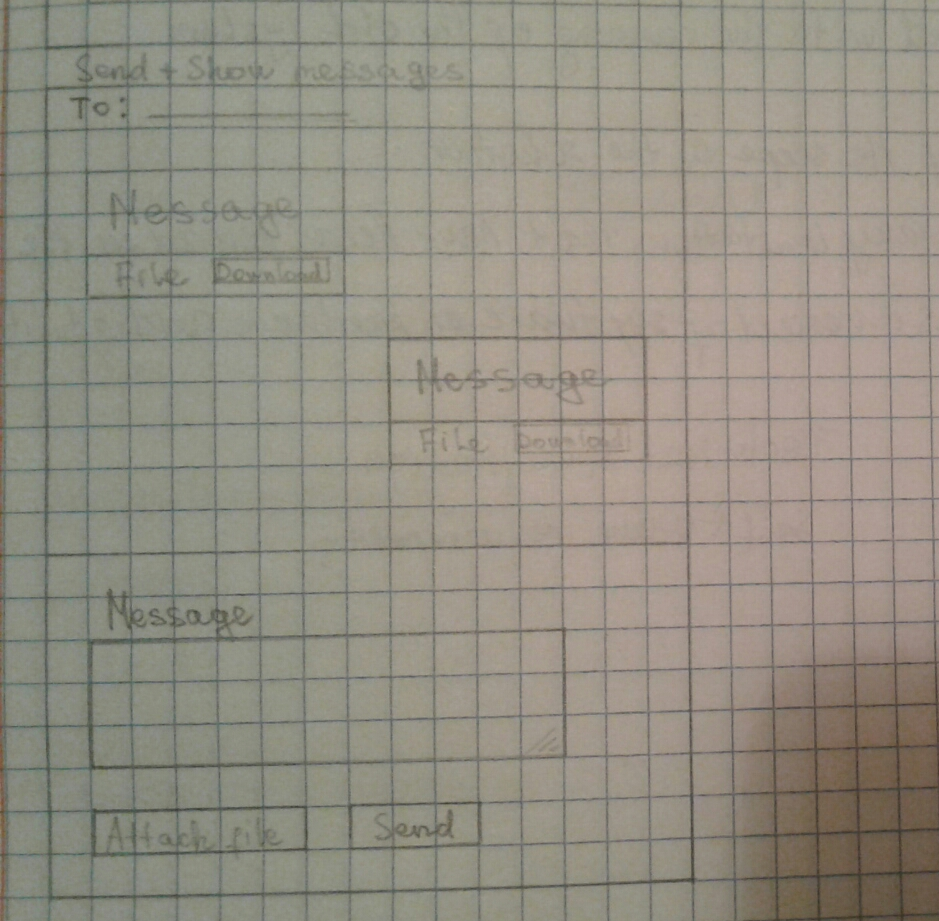 Send + Show messages
To:
Message
File Download
Message
File Download
Message
Attach file Send